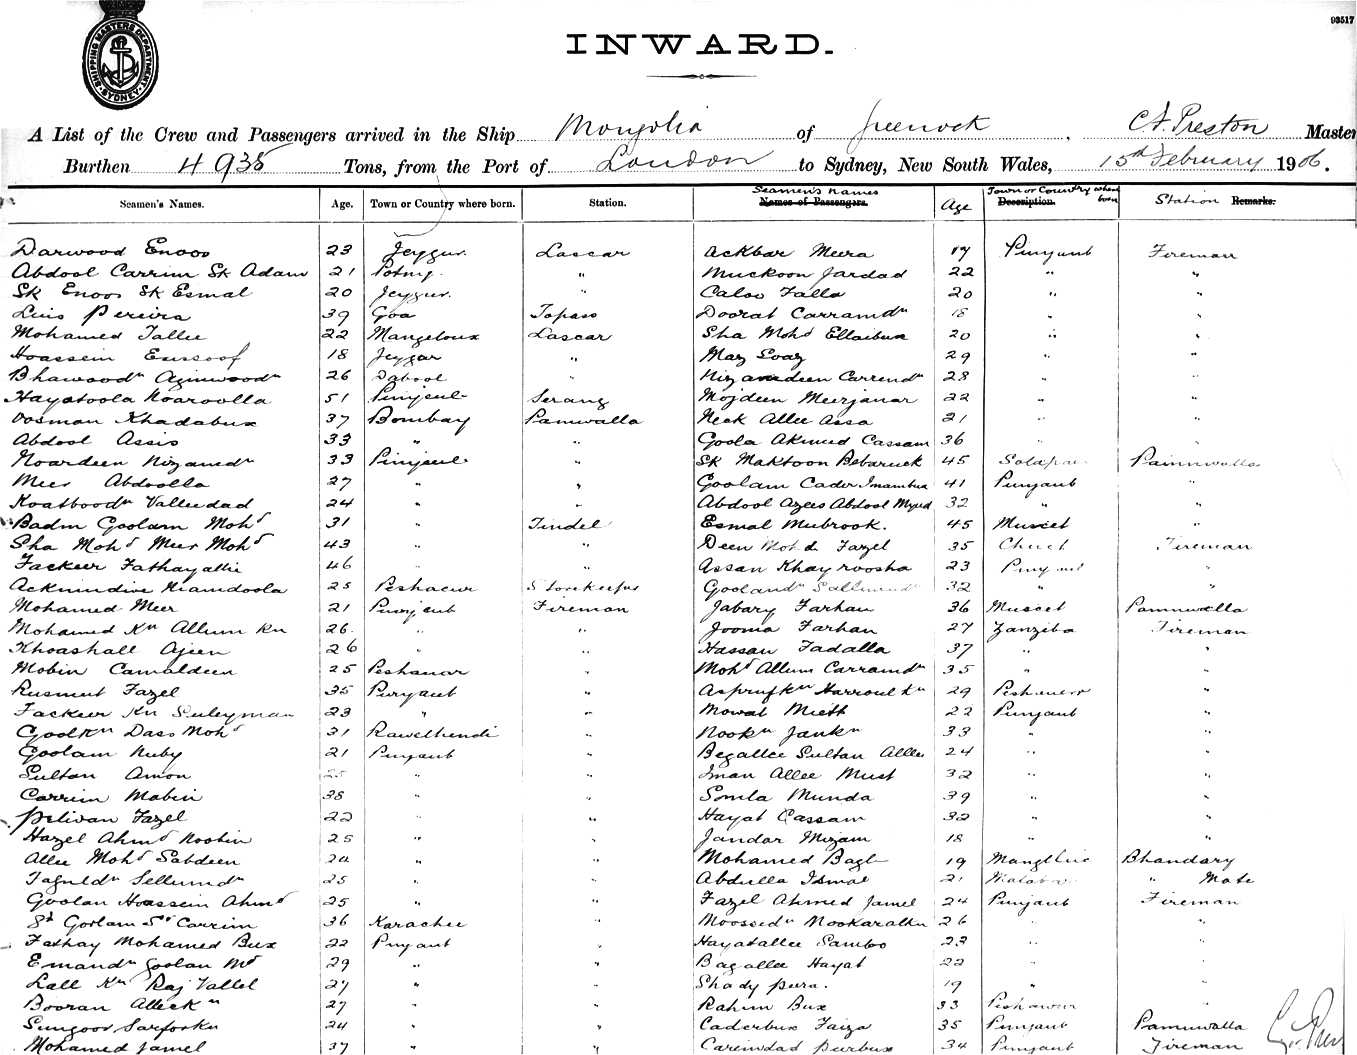 93517
SHIPPING MASTERS DEPARTMENT SYDNEY
INWARD.
A List of the Crew and Passengers arrived in the Ship Mongolia of Greenock, C. L. Preston Master
Burthen 4938 Tons, from the Port of London to Sydney, New South Wales, 15th February 1906.
Seamen's Names. Age. Town or Country where born. Station. Seamen's Names Names of Passengers. Age Town or Country where born Description. Station Remarks.
Darwood Enoos 23 Jeygur. Lascar Ackbar Meera 17 Punjaub Fireman
Abdool Carrim Sk Adam 21 " Muckoon Jardad 22 " "
Sk Enoos Sk Esmal 20 Jeygur. " Caloo Falla 20 " "
Luis Pereira 39 Goa Topass Doorat Carramdn 18 " "
Mohamed Tallee 22 Mangeloux Lascar Sha Mohd Ellaibux 20 " "
Hoassein Eussoof 18 Jeygar " May Loay 29 " "
Bhawoodn Aginwoodn 26 Dabool " Nizamdeen Carrendn 28 " "
Hayatoola Noaroolla 51 Pinjeub Serang Mojdeen Meerjanar 22 " "
Oosman Khadabux 37 Bombay Paniwalla Neck Allee Assa 21 " "
Abdool Assis 33 " " Goola Akmed Cassam 36 " "
Noardeen Nizamdn 33 Pinjeub " Sk Maktoon Bebaruck 45 Paniwalla
Meer Abdoolla 27 " " Goolam Cader Imambux 41 Punjaub "
Koatboodn Valleedad 24 " " Abdool Azees Abdool Myid 32 " "
Badm Goolam Mohd 31 " Tindel Esmal Mubrook. 45 Muscet "
Sha Mohd Meer Mohd 43 " " Deen Mohd Fazel 35 Fireman
Fackeer Fathayallie 46 " " Assan Khayroosha 23 Punjaub "
Ackmindive Niamdoola 25 Peshaeur Storekeeper Gooland 32 " "
Mohamed Meer 21 Punjaub Fireman Jabary Farhan 36 Muscet Paniwalla
Mohamed Kn Allum Kn 26 " " Jooma Farhan 27 Zanziba Fireman
Khoashall Ajeen 26 " " Hassan Fadalla 37 " "
Mobin Camaldeen 25 Peshanar " Mohd Allum Carramdn 35 " "
Rusmut Fazel 35 Punjaub " Asprufkn Harroul Kn 29 Peshaeur "
Fackeer Kn Suleyman 23 " " Mowat Mieth 22 Punjaub "
Goolkn Dass Mohd 31 Rawelhendi " Nookn Jankn 33 " "
Goolam Nuby 21 Punjaub " Begallee Sultan Allee 24 " "
Sultan Amon 25 " " Iman Allee Must 32 " "
Carrim Mabin 38 " " Somla Munda 39 " "
Pelivan Fazel 22 " " Hayat Cassam 32 " "
Hazel Ahmd Noobin 25 " " Jandar Mizam 18 " "
Allee Mohd Sabdeen 24 " " Mohamed Bagh 19 Bhandary
Tagueldn Sellumdn 25 " " Abdulla Ismal 21 Malabar " Mate
Goolan Hoassein Ahmd 25 " " Fazel Ahmed Jamel 24 Punjaub Fireman
Sd Goolam Sd Carrim 36 Karachee " Moossedn Nookarallu 26 " "
Fathay Mohamed Bux 22 Punjaub " Hayatallee Samboo 22 " "
Emandn Goolan Md 29 " " Bagallee Hayat 22 " "
Lall Kn Raj Vallel 27 " " Shady Peera. 19 " "
Booran Alleekn 27 " " Rahim Bux 33 Peshawur "
Sungoor Sarforkn 24 " " Caderbux Faiza 35 Punjaub Paniwalla
Mohamed Jamel 37 " " Careindad Peerbux 34 Punjaub Fireman